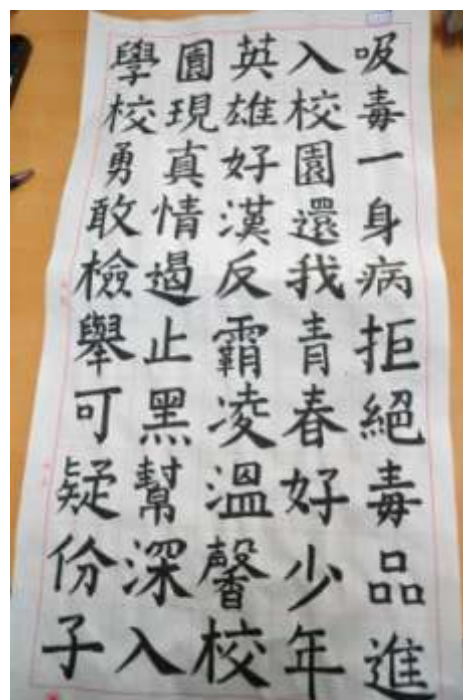 吸毒一身病拒絕毒品進
入校園還我青春好少年
英雄好漢反霸凌溫馨校
園現真情遏止黑幫深入
學校勇敢檢舉可疑份子